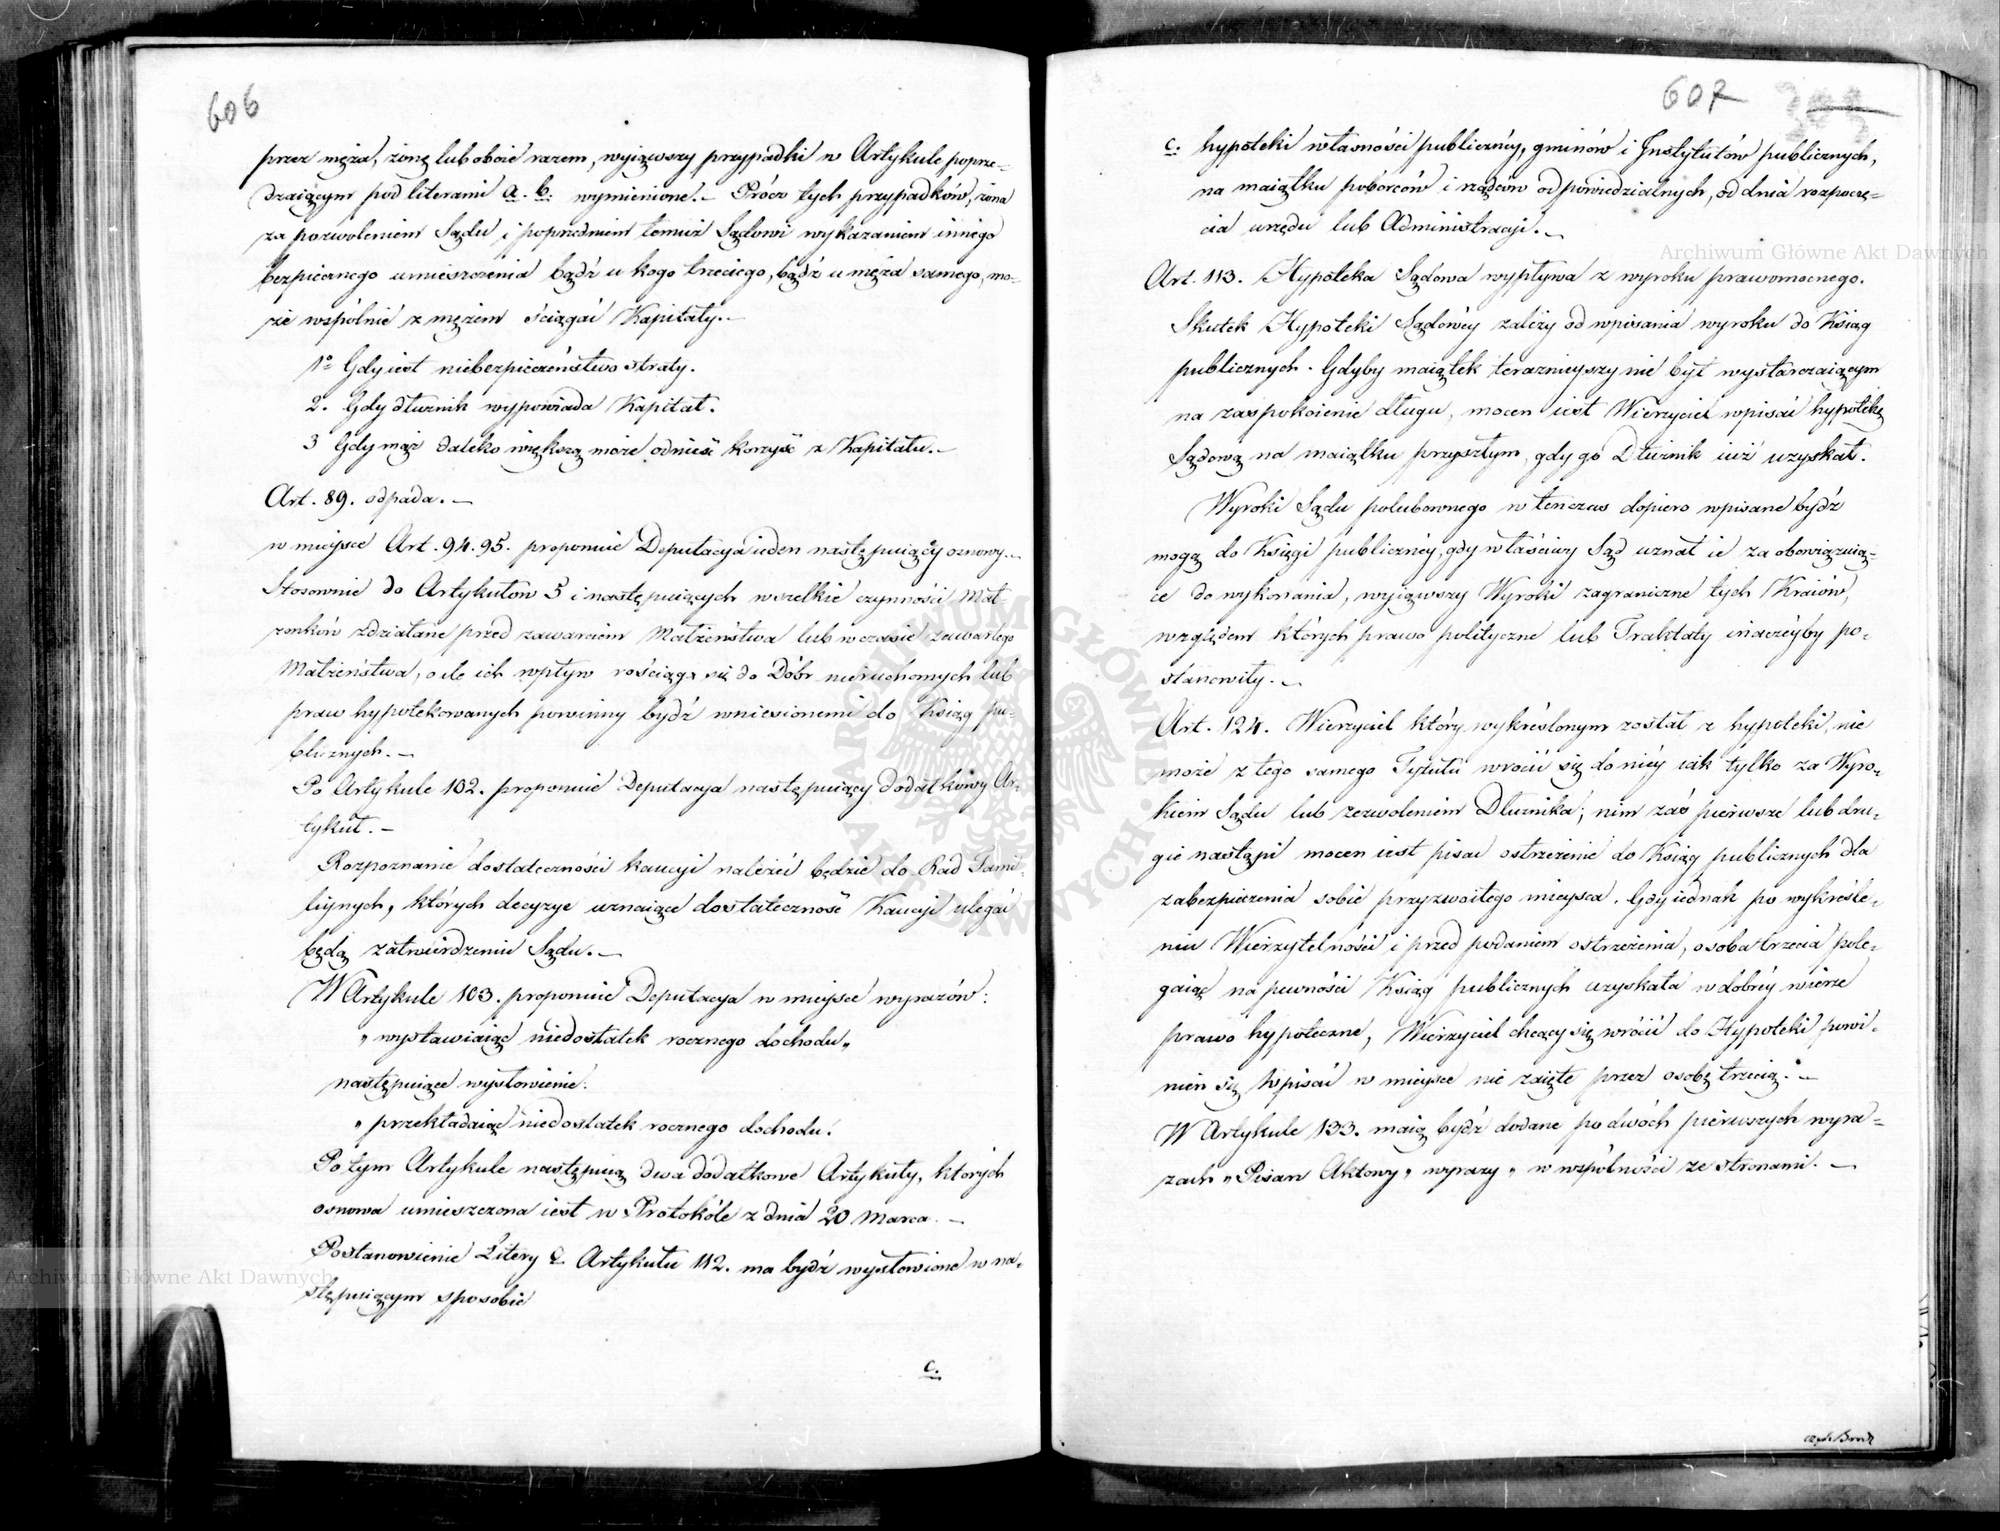 606
przez męża, żonę lub oboie razem, wyiąwszy przypadki w Artykule poprze-
dzaiącym pod literami a. b. wymienione. – Prócz tych przypadków, żona
za pozwoleniem Sądu i poprzedniem temuż Sądowi wykazaniem innego
bezpiecznego umieszczenia bądź u kogo trzeciego, bądź u męża samego, mo-
że wspólnie z mężem ściągać Kapitały. –
1° Gdy iest niebezpieczeństwo straty.
2. Gdy dłużnik wypowiada Kapitał.
3 Gdy mąż daleko większą może odnieść korzyść z Kapitału. –
Art. 89. odpada. –
w miejsce Art. 94. 95. proponuie Deputacya ieden następuiącéy osnowy. –
Stosownie do Artykułów 5 i następuiących wszelkie czynności Mał-
żonków zdziałane przed zawarciem Małżeństwa lub w czasie zawartego
Małżeństwa, o ile ich wpływ rościąga się do Dóbr nieruchomych lub
praw hypotekowanych powinny bydź wniesionemi do Ksiąg pu-
blicznych. –
Po Artykule 102. proponuie Deputacya następuiący dodatkowy Ar-
tykuł. –
Rozpoznanie dostateczności kaucyi należéć będzie do Rad Fami-
liynych, których decyzye uznaiące dostateczność Kaucyi ulegać
będą zatwierdzeniu Sądu. –
W Artykule 103. proponuie Deputacya w miejsce wyrazów:
„ wystawiaiąc niedostatek rocznego dochodu „
następuiące wysłowienie:
„ przekładaiąc niedostatek rocznego dochodu.
Po tym Artykule następuią dwa dodatkowe Artykuły, których
osnowa umieszczona iest w Protokóle z dnia 20 Marca. –
Postanowienie Litery c Artykułu 112. ma bydź wysłowione w na-
stępuiącym sposobie
c.
607
c. hypoteki własności publicznéy, gminów i Instytutów publicznych,
na maiątku poborców i rządców odpowiedzialnych, od dnia rozpoczę-
cia urzędu lub Administracyi. –
Art. 113. Hypoteka Sądowa wypływa z wyroku prawomocnego.
Skutek Hypoteki Sądowéy zależy od wpisania wyroku do Ksiąg
publicznych. Gdyby maiątek teraznieyszy nie był wystarczaiącym
na zaspokoienie długu, mocen iest Wierzyciel wpisać hypotekę
Sądową na maiątku przyszłym, gdy go Dłużnik iuż uzyskał.
Wyroki Sądu polubownego w tenczas dopiero wpisane bydź
mogą do Księgi publicznéy, gdy właściwy Sąd uznał ie za obowiązuią-
ce do wykonania, wyiąwszy Wyroki zagraniczne tych Kraiów,
względem których prawo polityczne lub Traktaty inaczéyby po-
stanowiły. –
Art. 124. Wierzyciel który wykréślonym został z hypoteki, nie
może z tego samego Tytułu wrócić się do niéy iak tylko za Wyro-
kiem Sądu lub zezwoleniem Dłużnika; nim zaś pierwsze lub dru-
gie nastąpi mocen iest pisać ostrzeżenie do Ksiąg publicznych dla
zabezpieczenia sobie przyzwoitego mieysca. Gdy iednak po wykreśle-
niu Wierzytelności i przed podaniem ostrzeżenia, osoba trzecia pole-
gaiąc na pewności Ksiąg publicznych uzyskała w dobréy wierze
prawo hypoteczne, Wierzyciel chcący się wrócić do Hypoteki powi-
nien się wpisać w mieysce nie zaięte przez osobę trzecią. –
W Artykule 133. maią bydź dodane po dwóch pierwszych wyra-
zach „ Pisarz Aktowy „ wyrazy „ w wspólności ze stronami. –
Archiwum Główne Akt Dawnych
Archiwum Główne Akt Dawnych
ARCHIWUM GŁÓWNE AKT DAWNYCH